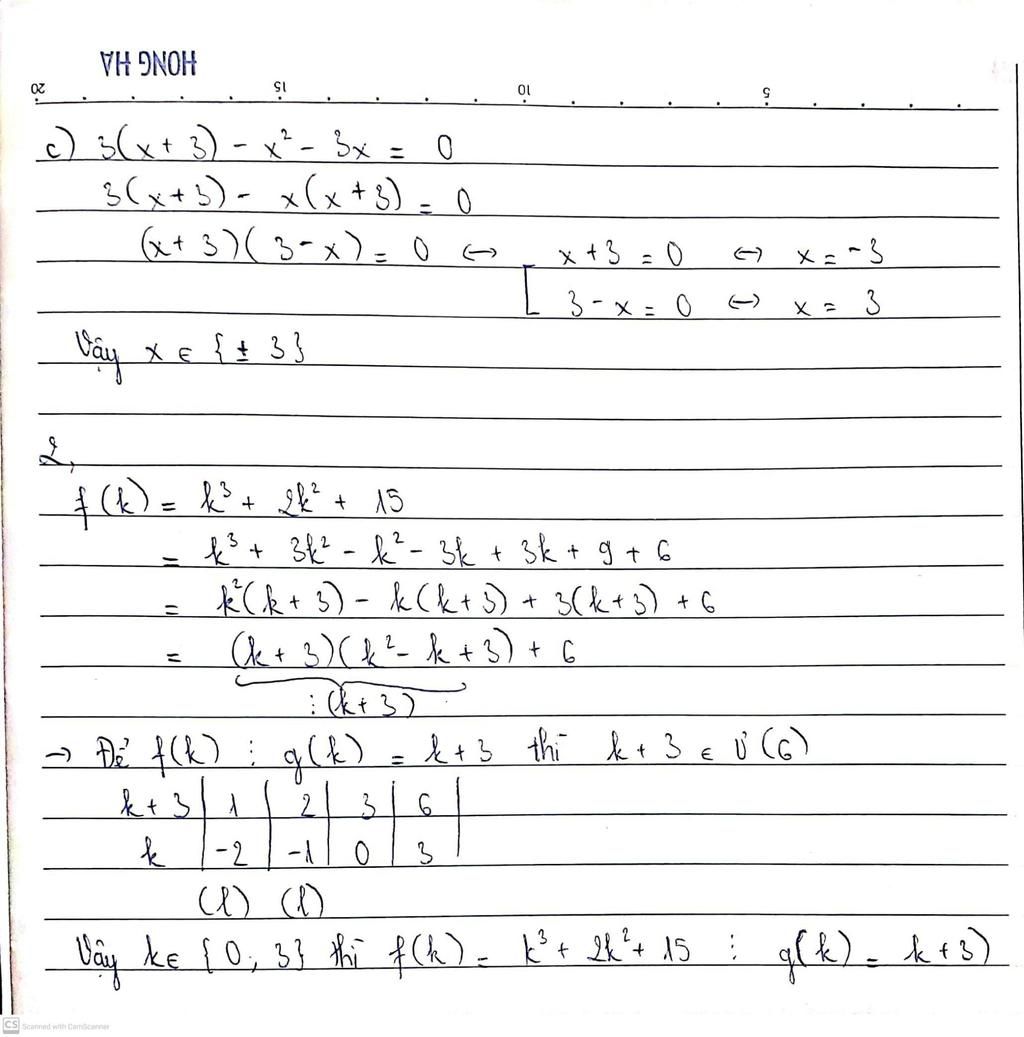 HONG HA
20 15 10 5
c) 3(x + 3) - x² - 3x = 0
3(x + 3) - x(x + 3) = 0
(x + 3)(3 - x) = 0 ↔ [ x + 3 = 0 ↔ x = -3
3 - x = 0 ↔ x = 3
Vậy x ∈ {± 3}
2,
f(k) = k³ + 2k² + 15
= k³ + 3k² - k² - 3k + 3k + 9 + 6
= k²(k + 3) - k(k + 3) + 3(k + 3) + 6
= (k + 3)(k² - k + 3) + 6
⋮ (k + 3)
→ Để f(k) ⋮ g(k) = k + 3 thì k + 3 ∈ Ư(6)
k + 3 | 1 | 2 | 3 | 6 |
k | -2 | -1 | 0 | 3 |
(l) (l)
Vậy k ∈ {0; 3} thì f(k) = k³ + 2k² + 15 ⋮ g(k) = k + 3)
CS Scanned with CamScanner